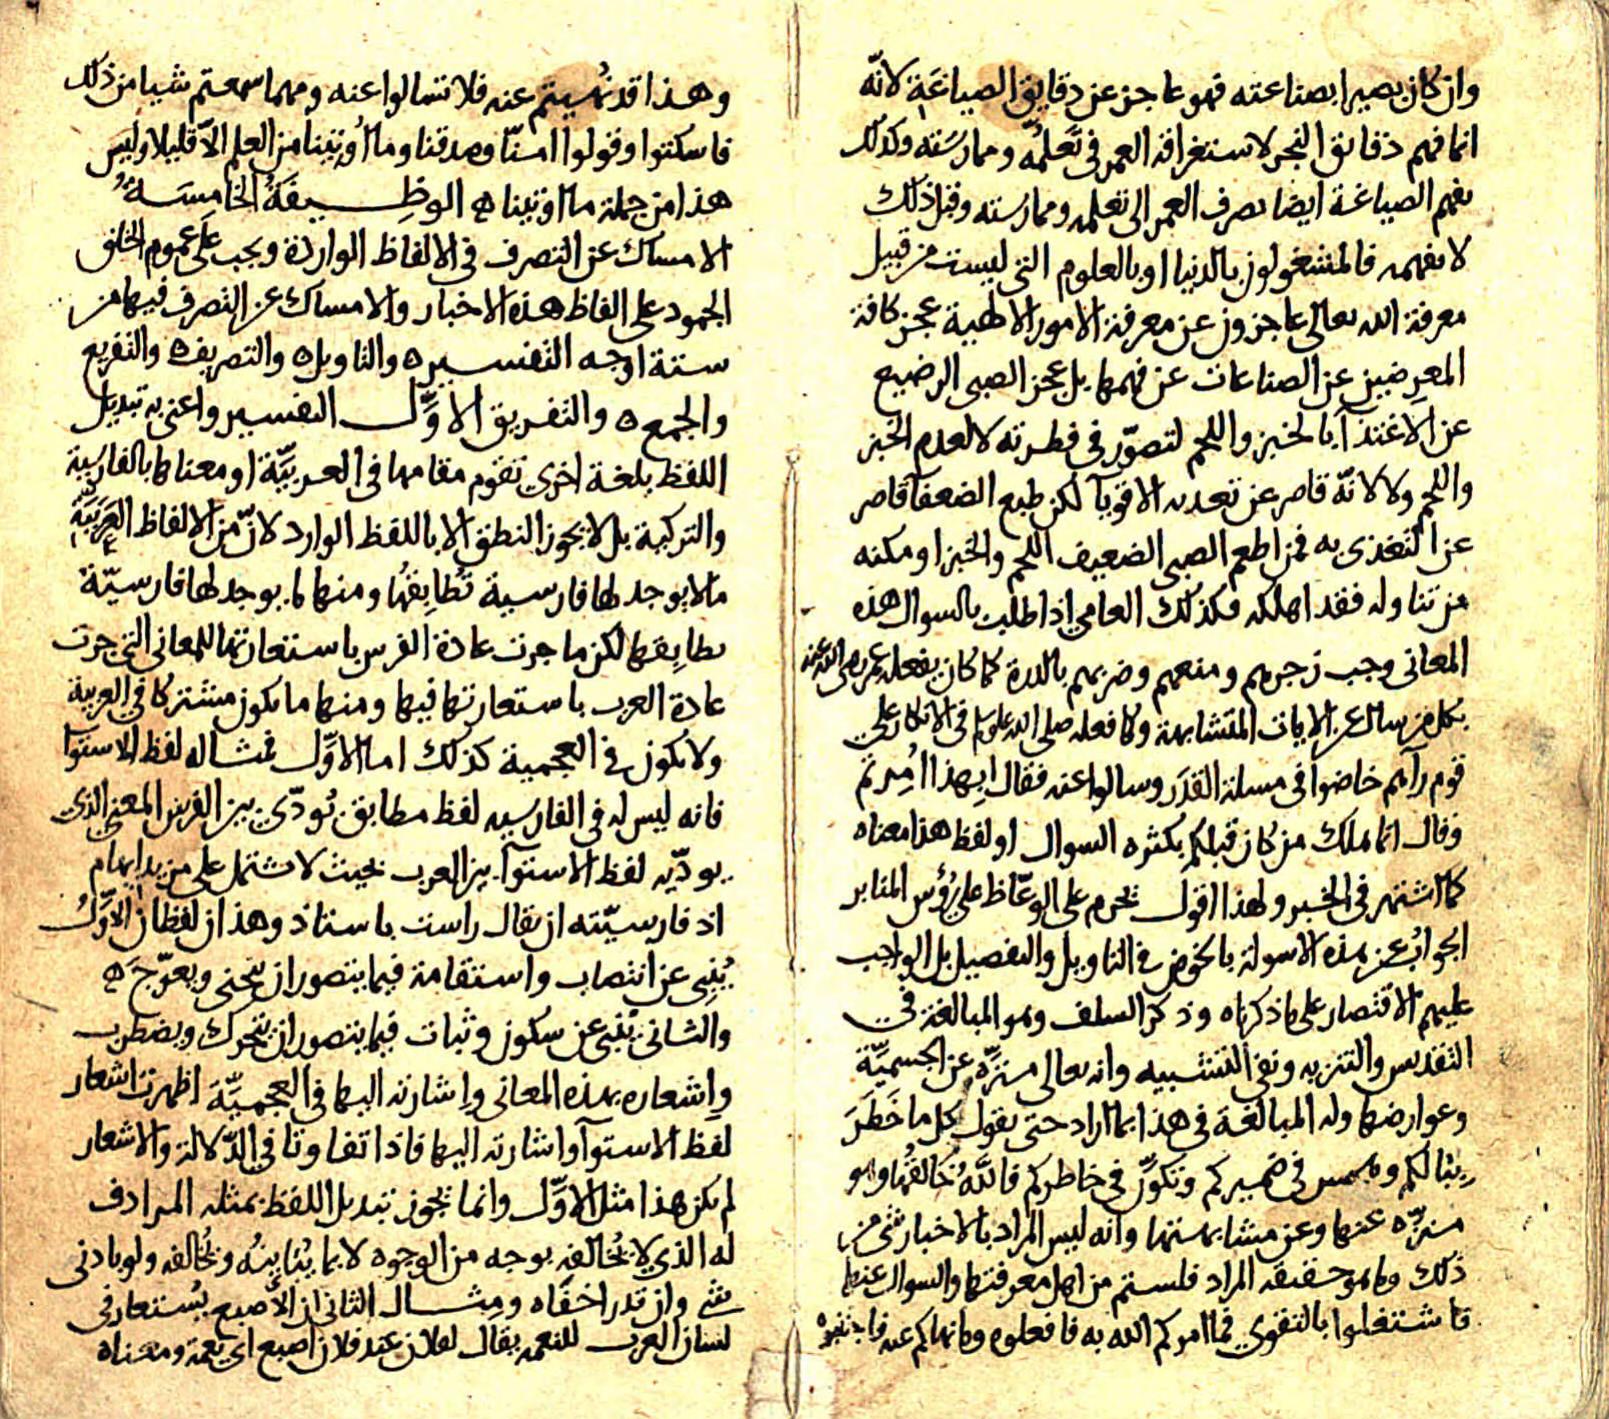 وان كان بصيرا بصناعته فهو عاجز عن دقايق الصياغة لانه
انما فهم دقايق النجر لاستغراقه العمر في تعلمه وممارسته وكذلك
يفهم الصياغة ايضا بصرف العمر الى تعلمه وممارسته وقبل ذلك
لا يفهمه فالمشغولون بالدنيا او بالعلوم التي ليست من قبيل
معرفة الله تعالى عاجزون عن معرفة الامور الالهية عجز كافة
المعرضين عن الصناعات عن فهمها بل عجز الصبي الرضيع
عن الاغتذآ بالخبز واللحم لقصور في فطرته لا لعدم الخبز
واللحم ولا لانه قاصر عن تغذيه الاقويآ لكن طبع الضعفآ قاصر
عن التغذي به فمن اطعم الصبي الضعيف اللحم والخبز او مكنه
من تناوله فقد اهلكه وكذلك العامي اذا طلبت بالسوال هذه
المعاني وجب زجرهم ومنعهم وضربهم بالدرة كما كان يفعله عمر رضى الله عنه
بكل من سال عن الايات المتشابهة وكما فعله صلى الله عليه وسلم في الانكار على
قوم رآهم خاضوا في مسلة القدر وسالوا عنه فقال ابهذا امرتم
وقال انما هلك من كان قبلكم بكثره السوال او لفظ هذا معناه
كما اشتهر في الخبر ولهذا اقول يحرم على الوعاظ على رؤس المنابر
الجواب عن هذه الاسولة بالخوض في التاويل والتفصيل بل الواجب
عليهم الاقتصار على ما ذكرناه وذكره السلف وهو المبالغة في
التقديس والتنزيه ونفي التشبيه وانه تعالى منزه عن الجسمية
وعوارضها وله المبالغة في هذا بما اراد حتى يقول كل ما خطر
ببالكم وهجس في ضميركم وتكور في خاطركم فالله خالقها وهو
منزه عنها وعن مشابهتها وانه ليس المراد بالاخبار شي من
ذلك وما هو حقيقه المراد فلستم من اهل معرفتها والسوال عنها
فاشتغلوا بالتقوي فما امركم الله به فافعلوه وما نهاكم عنه فاجتنبوه
وهذا قد نهيتم عنه فلا تسالوا عنه ومهما سمعتم شيا من ذلك
فاسكتوا وقولوا امنا وصدقنا وما اوتينا من العلم الا قليلا وليس
هذا من جملة ما اوتيناه الوظيفة الخامسة
الامساك عن التصرف في الالفاظ الواردة ويجب على عموم الخلق
الجمود على الفاظ هذه الاخبار والامساك عن التصرف فيها من
ستة اوجه التفسير ه والتاويل ه والتصريف ه والتفريع
والجمع ه والتفريق الاول التفسير واعني به تبديل
اللفظ بلغة اخري تقوم مقامها في العربية او معناها بالفارسية
والتركية بل لا يجوز النطق الا باللفظ الوارد لان من الالفاظ العربية
ما لا يوجد لها فارسية تطابقها ومنها ما يوجد لها فارسية
تطابقها لكن ما جرت عادة الفرس باستعارتها للمعاني التي جرت
عادة العرب باستعارتها فيها ومنها ما يكون مشتركا في العربية
ولا يكون في العجمية كذلك اما الاول فمثاله لفظ الاستوا
فانه ليس له في الفارسيه لفظ مطابق يودي بين الفرس المعني الذي
يوديه لفظ الاستوآ بين العرب بحيث لا يشتمل على مزيد ابهام
اذ فارسيته ان يقال راست باستاذ وهذان لفظان الاول
ينبي عن انتصاب واستقامة فيما يتصور ان ينحني ويعوج ه
والثاني ينبي عن سكون وثبات فيما يتصور ان يتحرك ويضطرب
واشعاره بهذه المعاني واشارته اليها في العجمية اظهر من اشعار
لفظ الاستوآ واشارته اليها فاذا تفاوتا في الدلالة والاشعار
لم يكن هذا مثل الاول وانما يجوز تبديل اللفظ بمثله المرادف
له الذي لا يخالفه بوجه من الوجوه لا بما يباينه ويخالفه ولو بادنى
شي وان قدر اخفاه ومثال الثاني ان الاصبع يستعار في
لسان العرب للنعمه يقال لفلان عند فلان اصبع اي نعمة ومعناه